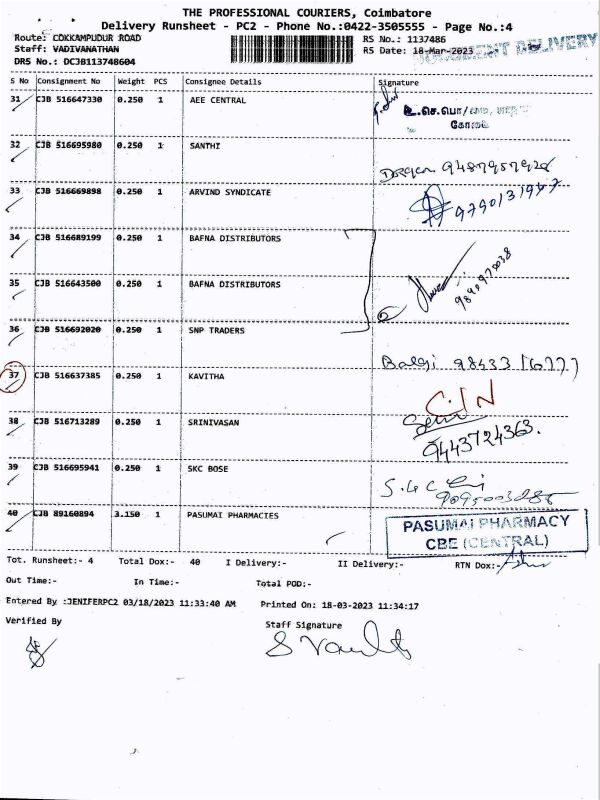 THE PROFESSIONAL COURIERS, Coimbatore
Delivery Runsheet - PC2 - Phone No.:0422-3505555 - Page No.:4
Route: COKKAMPUDUR ROAD RS No.: 1137486
Staff: VADIVANATHAN RS Date: 18-Mar-2023 DELIVERY
DRS No.: DCJB113748604
S No Consignment No Weight PCS Consignee Details Signature
31 CJB 516647330 0.250 1 AEE CENTRAL
32 CJB 516695980 0.250 1 SANTHI
33 CJB 516669898 0.250 1 ARVIND SYNDICATE
34 CJB 516689199 0.250 1 BAFNA DISTRIBUTORS
35 CJB 516643500 0.250 1 BAFNA DISTRIBUTORS
36 CJB 516692020 0.250 1 SNP TRADERS
37 CJB 516637385 0.250 1 KAVITHA
C/N
38 CJB 516713289 0.250 1 SRINIVASAN
9443724363.
39 CJB 516695941 0.250 1 SKC BOSE
40 CJB 89160894 3.150 1 PASUMAI PHARMACIES
PASUMAI PHARMACY
CBE (CENTRAL)
Tot. Runsheet:- 4 Total Dox:- 40 I Delivery:- II Delivery:- RTN Dox:-
Out Time:- In Time:- Total POD:-
Entered By :JENIFERPC2 03/18/2023 11:33:40 AM Printed On: 18-03-2023 11:34:17
Verified By Staff Signature